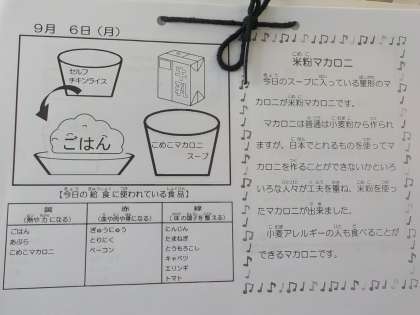 9月 6日(月)
セルフ
チキンライス
牛乳
ごはん
こめこマカロニ
スープ
【今日の給食に使われている食品】
黄
(熱や力になる)
ごはん
あぶら
こめこマカロニ
赤
(血や肉や骨になる)
ぎゅうにゅう
とりにく
ベーコン
緑
(体の調子を整える)
にんじん
たまねぎ
とうもろこし
キャベツ
エリンギ
トマト
米粉マカロニ
今日のスープに入っている星形のマ
カロニが米粉マカロニです。
マカロニは普通は小麦粉から作られ
ますが、日本でとれるものを使ってマ
カロニを作ることができないかといろ
いろな人々が工夫を重ね、米粉を使っ
たマカロニが出来ました。
小麦アレルギーの人も食べることが
できるマカロニです。